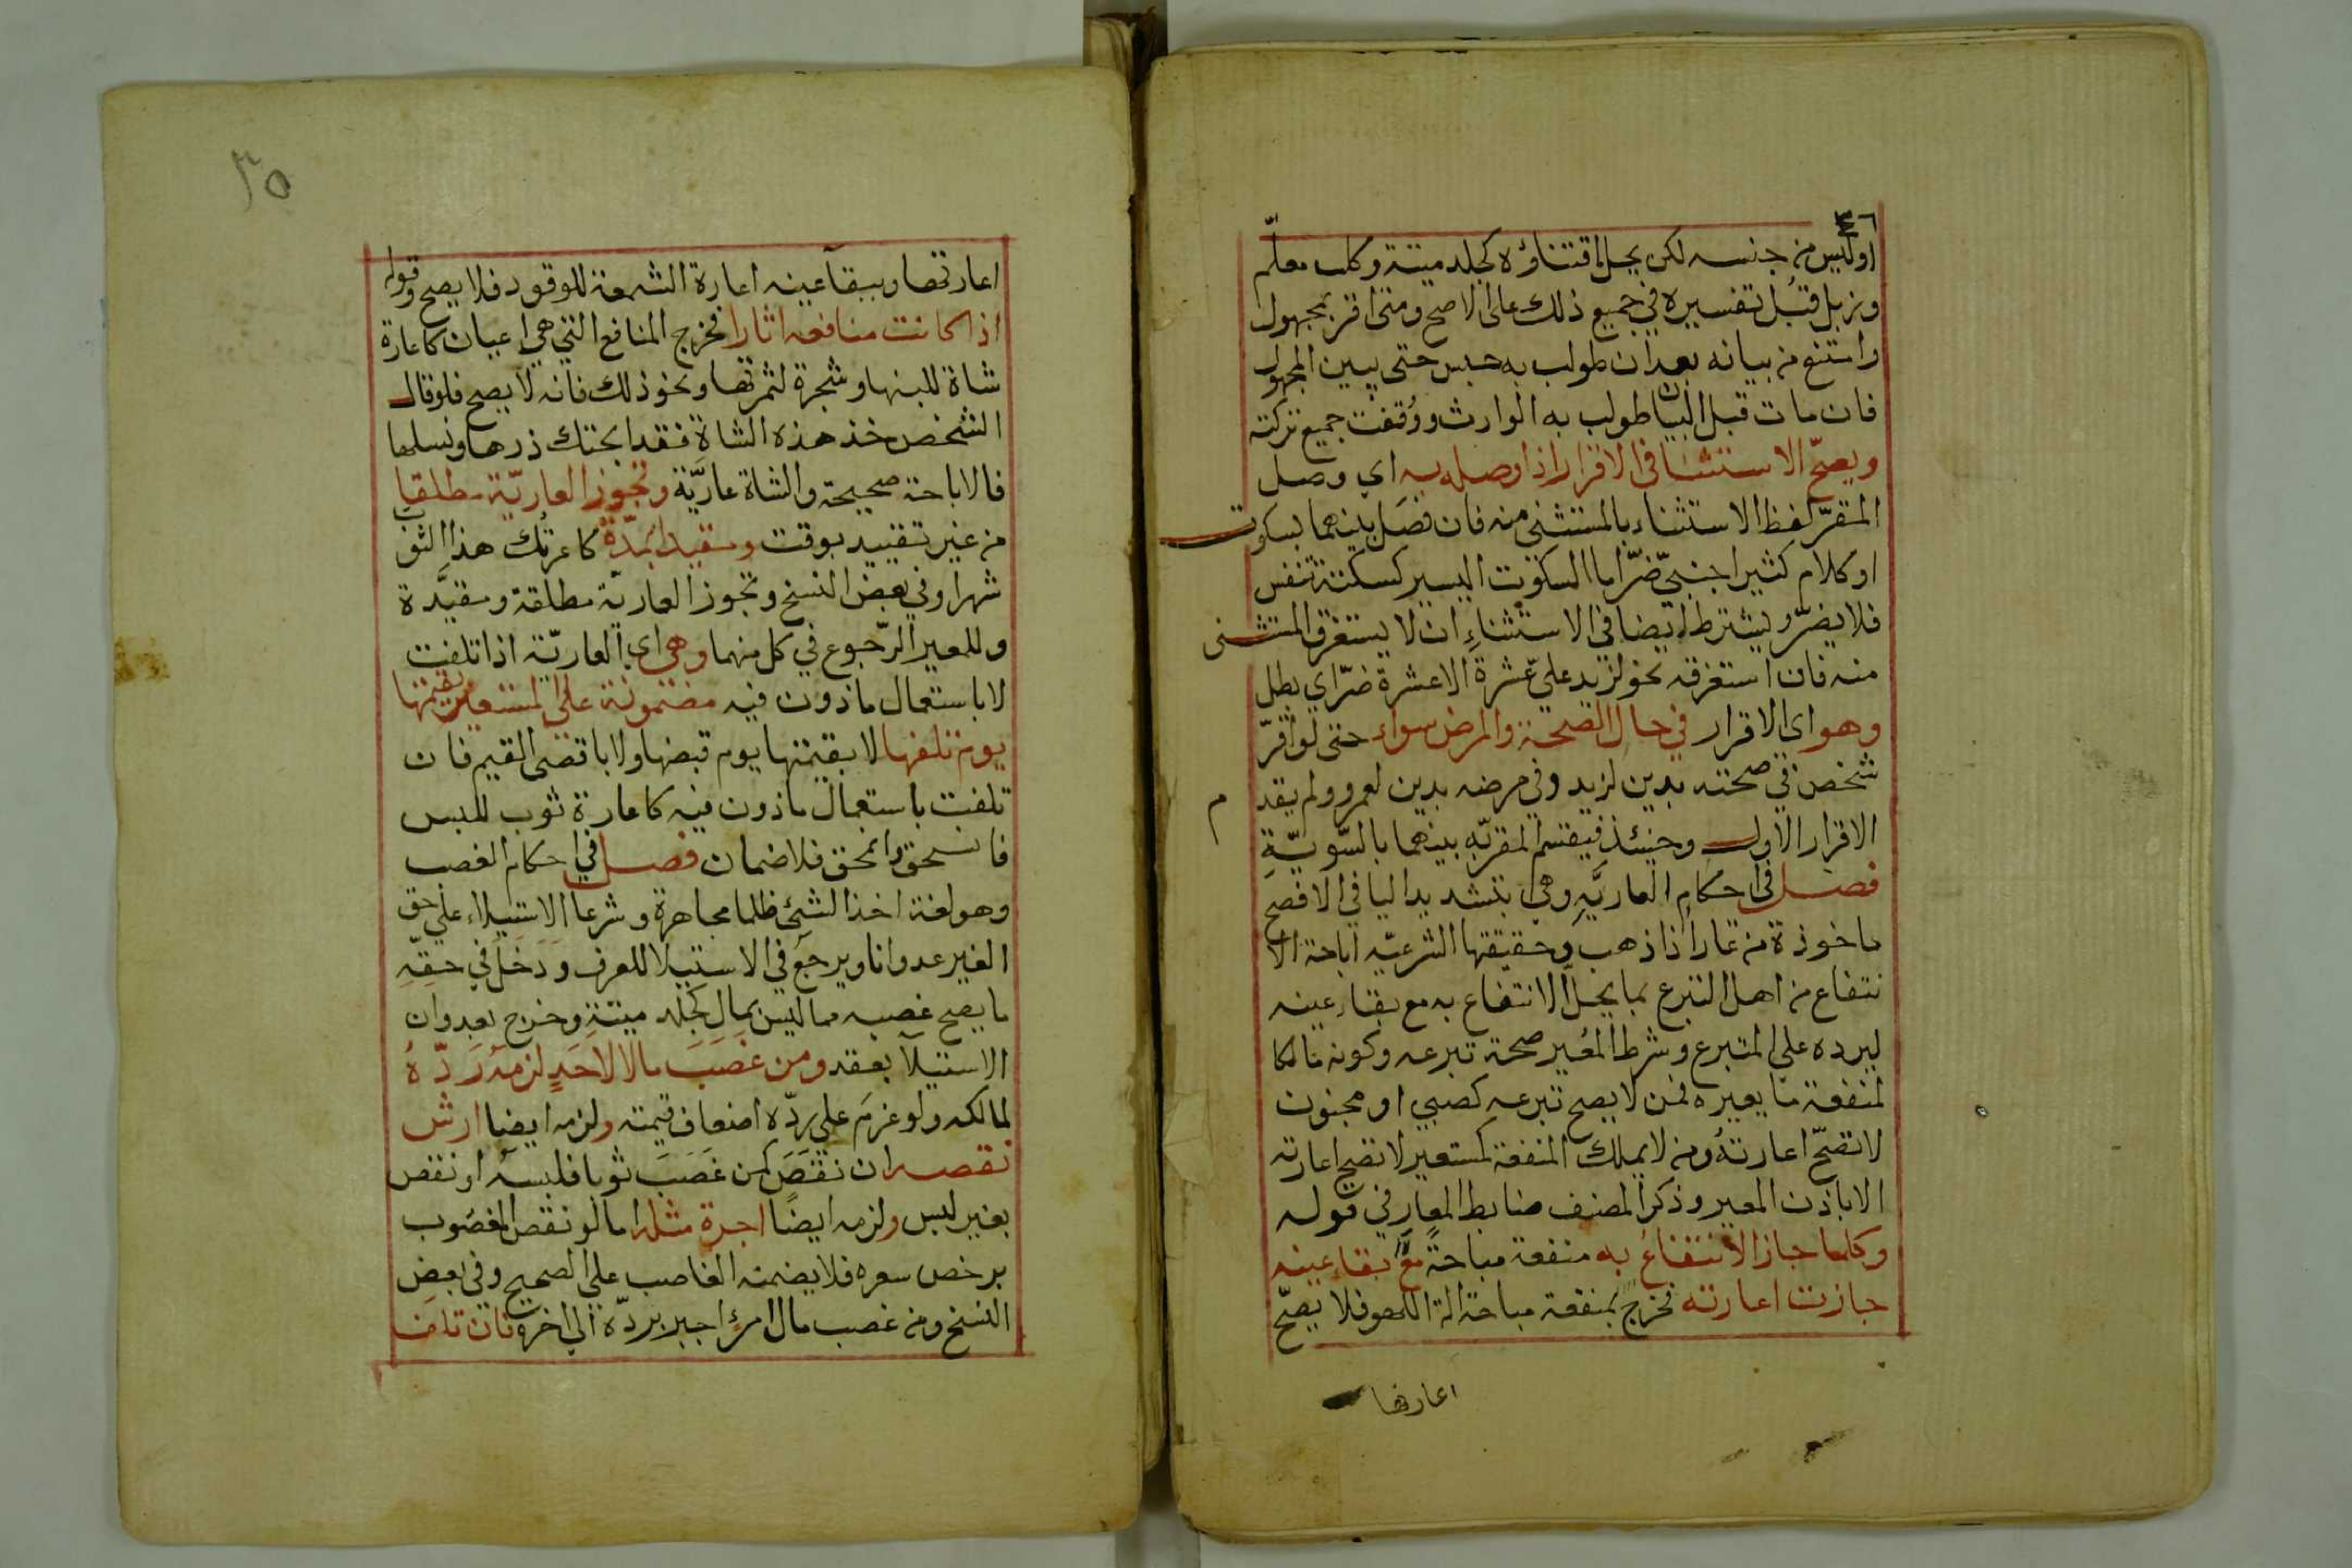 ٣٦
اوليس من جنسه لكن يحل اقتناؤه كجلد ميتة وكلب معلّم
وزبل قُبل تفسيره في جميع ذلك على الاصح ومتى اقر بمجهول
وامتنع من بيانه بعد ان طولب به حبس حتى يبين المجهول
فان مات قبل البيان طولب به الوارث ووُقفت جميع تركته
ويصحّ الاستثنا في الاقرار اذا وصله به اي وصل
المقرّ لفظ الاستثناء بالمستثنى منه فان فصَل بينهما بسكوت
او كلام كثير اجنبيّ ضرّ اما السكوت اليسير كسكتة تنفس
فلا يضرّ ويشترط ايضا في الاستثناءِ ان لا يستغرق المستثنى
منه فان استغرقه نحو لزيد عليّ عشرة الا عشرة ضرّ اي بطل
وهو اي الاقرار في حال الصحة والمرض سواء حتى لو اقرّ
شخص في صحته بدين لزيد وفي مرضه بدين لعمرو ولم يقدم
الاقرار الاول وحينئذ فيقسم المقرّ به بينهما بالسّويّةِ
فصل في احكام العاريَّهِ وهي بتشديد اليا في الافصح
ماخوذة من عار اذا ذهب وحقيقتها الشرعيّه اباحة الا
نتفاع من اهل التبرع بما يحل الانتفاع به مع بقاء عينه
ليرده على المتبرع وشرط المُعير صحة تبرعه وكونه مالكا
لمنفعة ما يعيره فمن لا يصح تبرعه كصبي او مجنون
لا تصحّ اعارتهُ ومن لا يملك المنفعة كمستعير لا تصح اعارته
الا باذن المعير وذكر المصنف ضابط المعار في قوله
وكلما جاز الانتفاعُ به منفعة مباحةً معَ بقاءِ عينه
جازت اعارته فخرج بمنفعة مباحة الة اللهو فلا يصحّ
اعارتها
٣٥
اعارتها وببقآ عينه اعارة الشمعة للوقود فلا يصح وقوله
اذا كانت منافعه اثارا فخرج المنافع التي هي اعيان كاعارة
شاة للبنها وشجرة لثمرتها ونحو ذلك فانه لا يصح فلو قال
الشخص خذ هذه الشاة فقد ابحتك درها ونسلها
فالاباحة صحيحة والشاة عاريَّة وتجوز العاريّة مطلقا
من غير تقييد بوقت ومقيدا بمدّة كاعرتُك هذا الثوب
شهرا وفي بعض النسخ وتجوز العاريّة مطلقة ومقيَّدة
وللمعير الرّجوع في كل منهما وهي اي العاريّة اذا تلفت
لا باستعمال ماذون فيه مضمونة على المستعير بقيمتها
يوم تلفها لا بقيمتها يوم قبضها ولا باقصى القيم فان
تلفت باستعمال ماذون فيه كاعارة ثوب للبس
فانسحق وانمحق فلا ضمان فصل في احكام الغصب
وهو لغة اخذ الشئ ظلما مجاهرة وشرعا الاستيلاء على حق
الغير عدوانا ويرجع في الاستيلا للعرف ودَخَلَ في حقّهِ
ما يصح غصبه مما ليس بمالٍ كجلد ميتةٍ وخرج بعدوان
الاستيلآ بعقد ومن غَصَبَ مالا لاحَدٍ لزمهُ رَدّهُ
لمالكه ولو غرم على ردّه اضعاف قيمته ولزمه ايضا ارش
نقصه ان نقصَ كمن غَصَبَ ثوبا فلبسهُ او نقص
بغير لبس ولزمه ايضًا اجرة مثله اما لو نقص المغصُوب
برخص سعره فلا يضمنه الغاصب على الصحيح وفي بعض
النسخ ومن غصب مال امرئٍ اجبر بردّه الى اخره فان تلف